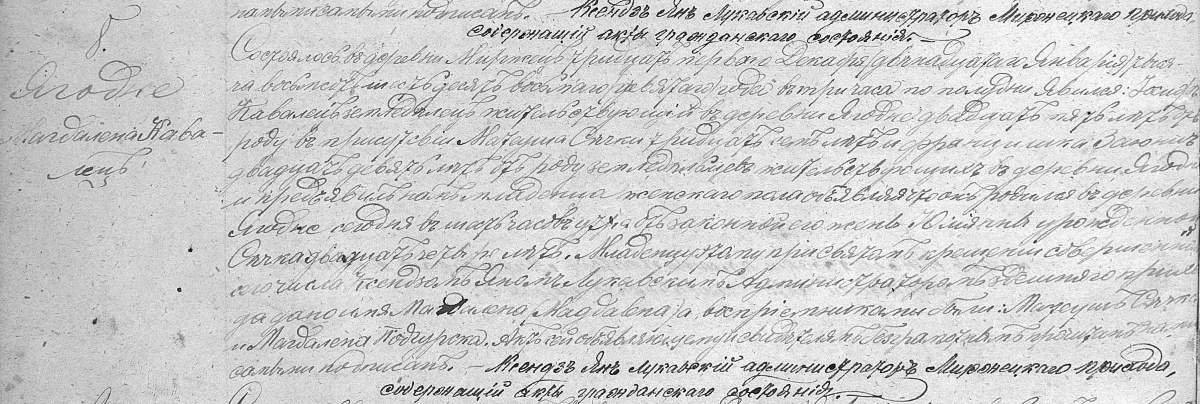 нами самыми подписанъ. — Ксендзъ Янъ Лукавскій администраторъ Миронецкаго прихода
содержащій акты гражданскаго состоянія.
8.
Ягодне
Магдалена Кава-
лецъ
Состоялось въ деревни тридцать перваго Декабря /двѣнадцатаго Января/ тыся-
ча восемьсотъ шестьдесятъ восьмаго /девятаго/ года въ три часа по полудни явился:
Кавалецъ земледѣлецъ жительствующій въ деревни Ягодне двадцать пять лѣтъ отъ
роду въ присутствіи Матеуша Сѣчки тридцать семь лѣтъ и Францишка
двадцать девять лѣтъ отъ роду земледѣльцевъ жительствующихъ въ деревни Ягодне
и предъявилъ намъ младенца женскаго пола объявляя что онъ родился въ деревни
Ягодне сегодня въ шесть часовъ утра отъ законной его жены Юліянны урожденной
Сѣчка двадцать четыре лѣтъ. Младенцу этому при святомъ крещеніи совершенномъ
сего числа Ксендзомъ Яномъ Лукавскимъ Администраторомъ здешняго прихо-
да дано имя Магдалена /Магдалена/ а воспріемниками были: Матеушъ Сѣчка
и Магдалена. Актъ сей объявляющему и свидѣтелямъ безграмотнымъ прочитанъ нами
самыми подписанъ. — Ксендзъ Янъ Лукавскій администраторъ Миронецкаго прихода,
содержащій акты гражданскаго состоянія.